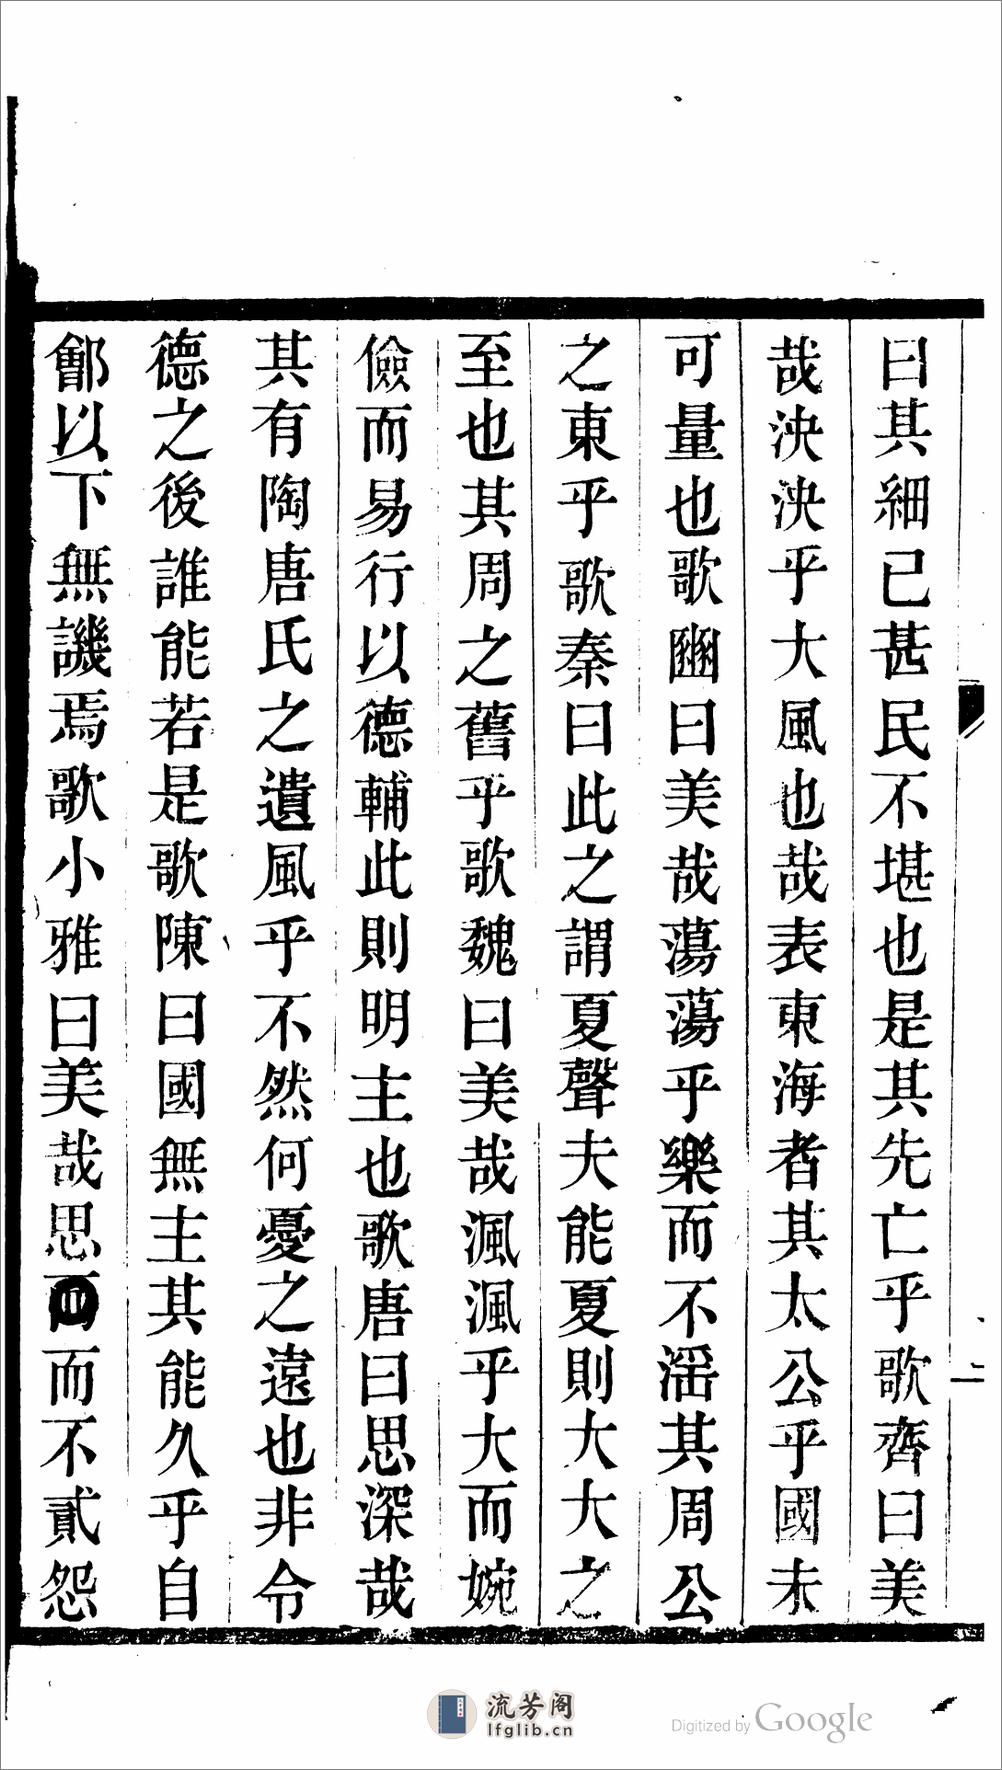 曰其細已甚民不堪也是其先亡乎歌齊曰美
哉泱泱乎大風也哉表東海者其太公乎國未
可量也歌豳曰美哉蕩蕩乎樂而不滛其周公
之東乎歌秦曰此之謂夏聲夫能夏則大大之
至也其周之舊乎歌魏曰美哉渢渢乎大而婉
儉而易行以德輔此則明主也歌唐曰思深哉
其有陶唐氏之遺風乎不然何憂之遠也非令
德之後誰能若是歌陳曰國無主其能久乎自
鄶以下無譏焉歌小雅曰美哉思而而不貳怨
二
流芳阁
lfglib.cn
Digitized by Google